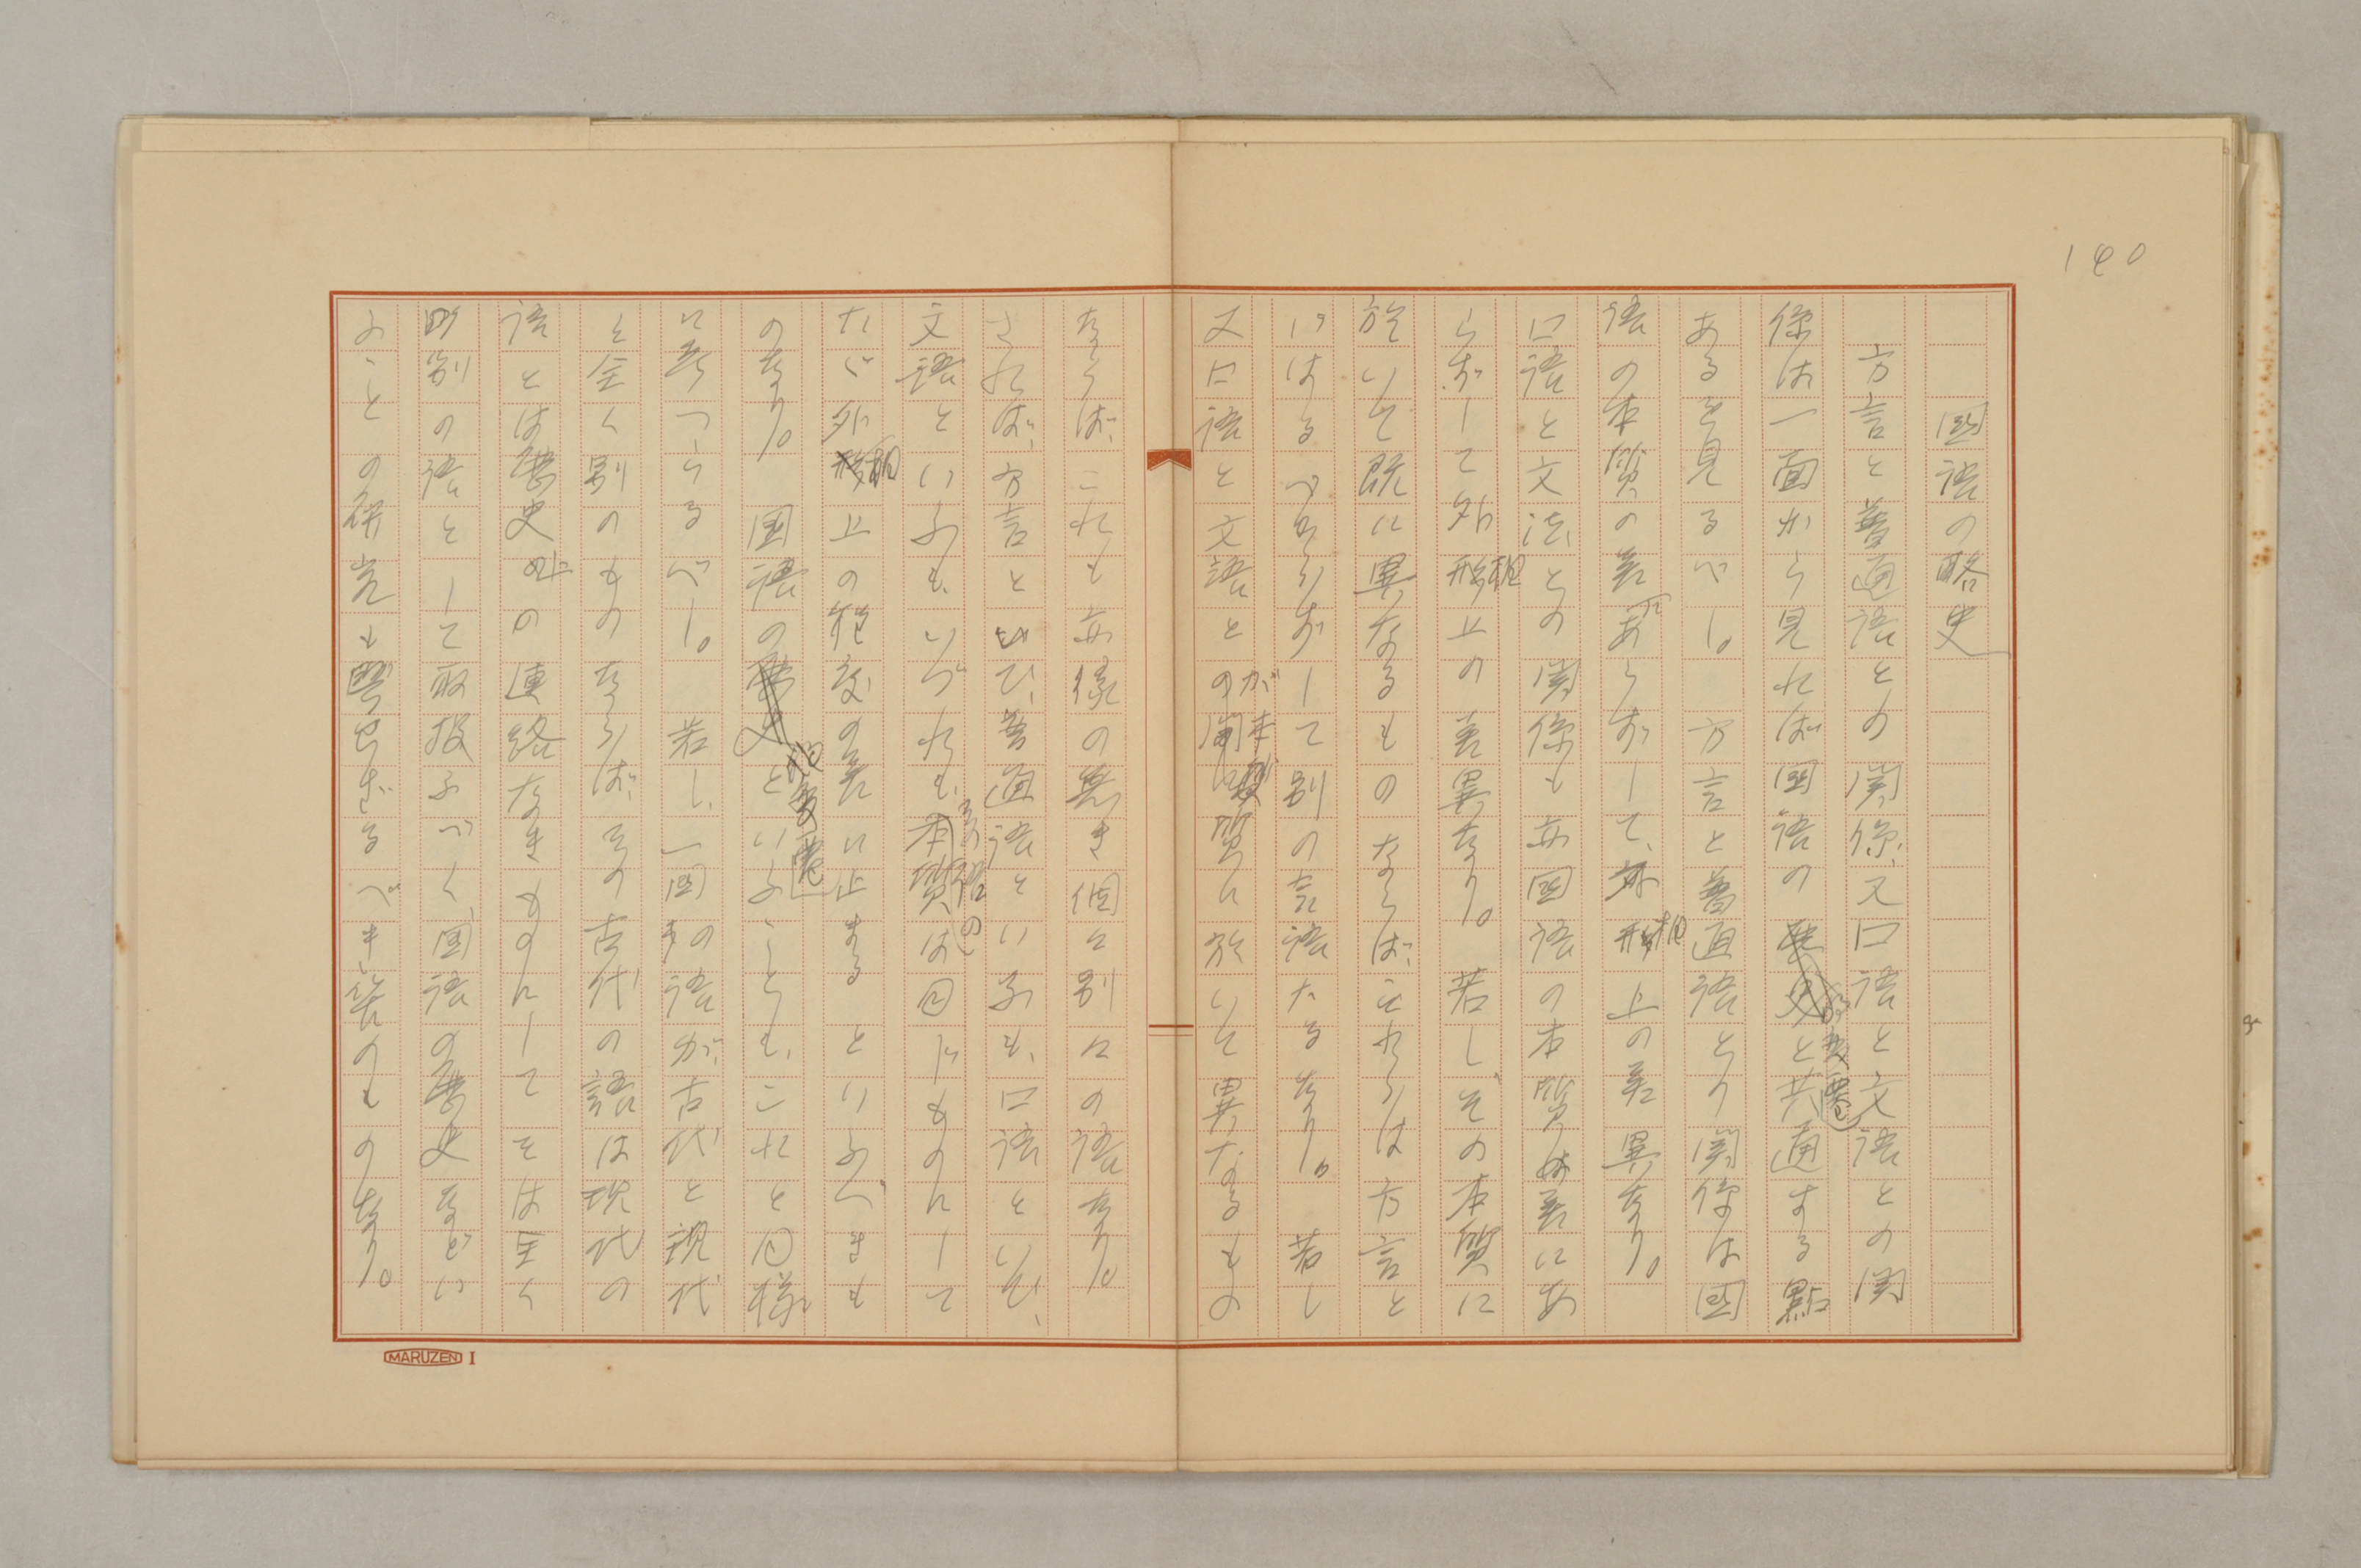 140
国語の略史
方言と普通語との関係、又口語と文語との関
係は一面から見れば国語の変遷と共通する點
あるを見るべし。方言と普通語との関係は国
語の本質の差にあらずして、外相上の差異なり。
口語と文法との関係も亦国語の本質の差にあ
らずして外相上の差異なり。若し、その本質に
於いて既に異なるものならば、それらは方言と
いはるべからずして別の言語たるなり。若し
又口語と文語とが本質に於いて異なるもの
ならば、これも亦様の異き個々別々の語なり。
されば、方言といひ、普通語といふも、口語といひ、
文語といふも、いづれも、本質は同じものにして
たゞ外相上の程度の差に止まるといふべきも
のなり。国語の変遷といふことも、これと同様
に考へつらるべし。若し、一国の語が、古代と現代
と全く別のものならば、その古代の語は現代の
語とは歴史上の連絡なきものにしてそは全く
別の語として取扱ふべく、国語の歴史などい
ふことの研究も要せざるべき筈のものなり。
MARUZEN I